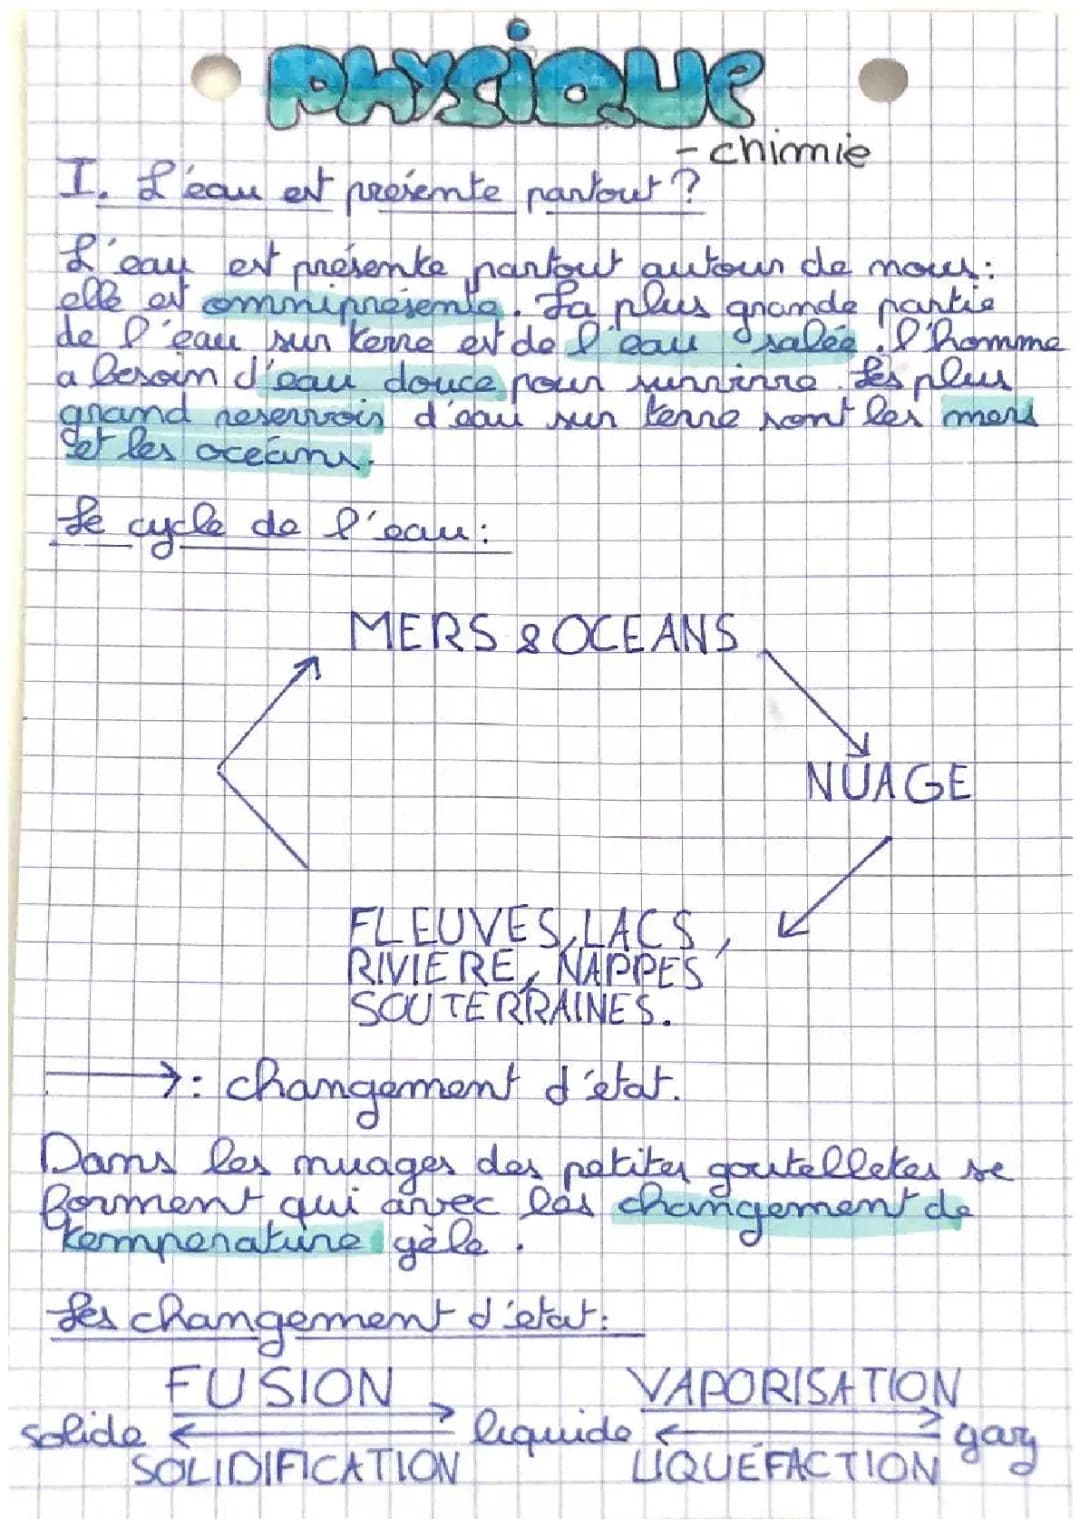 PHYSIQUE
- chimie
I. L'eau est présente partout ?
L'eau est présente partout autour de nous :
elle est omniprésente. La plus grande partie
de l'eau sur terre est de l'eau salée. l'homme
a besoin d'eau douce pour survivre. Les plus
grand reservoir d'eau sur terre sont les mers
et les océans.
Le cycle de l'eau :
MERS & OCEANS
NUAGE
FLEUVES, LACS,
RIVIERE, NAPPES
SOUTERRAINES.
→ : changement d'état.
Dans les nuages des petites goutellettes se
forment qui avec les changement de
température gèle.
Les changement d'état :
FUSION VAPORISATION
solide liquide gaz
SOLIDIFICATION LIQUÉFACTION